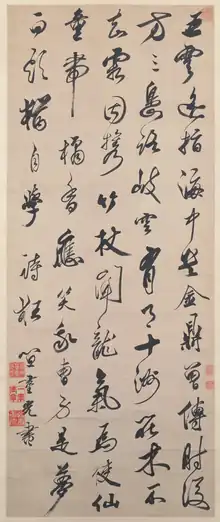 五雲遙指海中央金鼎曾傳肘後
方三島路岐空有月十洲花木不
知霜因攜竹杖聞龍氣為使仙
童帶橘香應笑我曹方是夢
白頭猶自學詩狂 笪重光書